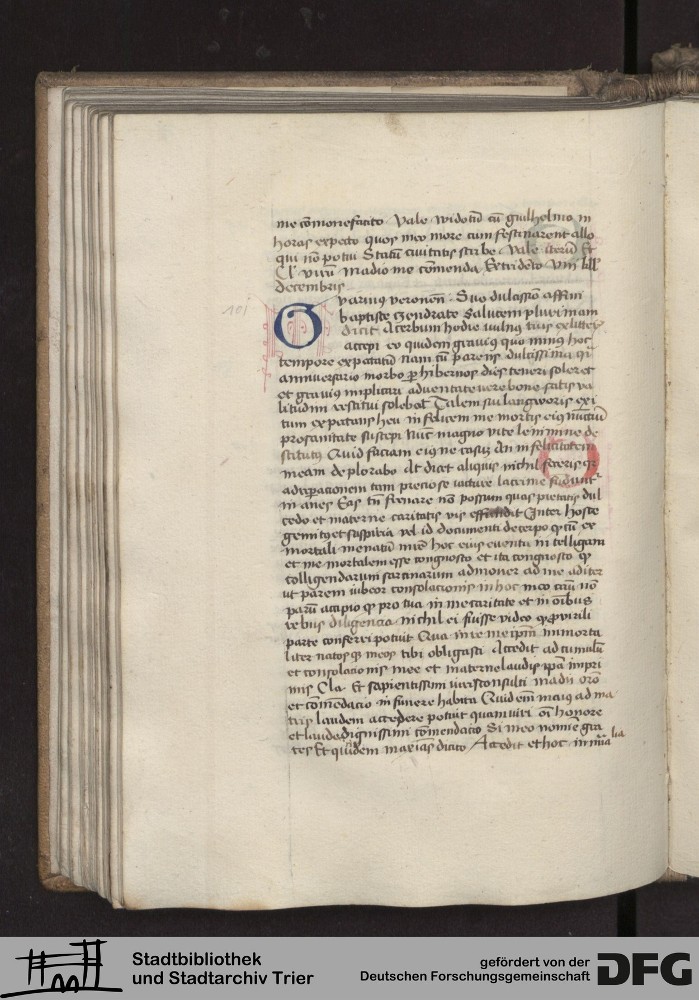 me com̄onefacito Vale widotū cū guilhelmo in
horas expecto quos meo more cum festinarent allo
qui nō potui Statū ciuitatis scribe Vale iterū Et
Cl' virū Madio me com̄enda Et
decembris
101
G varinus veronen̄ Suo dulcissimo affini
baptiste czendrate Salutem plurimam
dicit Acerbum hodie vulnus tuis ex litteris
accepi eo quidem gravius quo minus hoc
tempore expectatū nam cū parens dulcissima qui
anniversario morbo per hibernos dies teneri soleret
et gravius implicari adventante vere bone fatis va
litudini restitui solebat Talem sui langworis exi
tum expectans heu infelicem me mortis eius nuntiū
pro sanitate suscepi Nūc magno vite lenimine de
stitutus Quid faciam eius ne casus An infelicitatem
meam deplorabo At dicet aliquis nichil feceris
ad reparationem tam preciose iacture lacrime fūdunt
inanes Eas tn̄ frenare nō possum quas pietatis dul
cedo et materne caritatis vis effundit Inter hosce
gemitus et suspiria vel id documenti decerpo qd cū ex
mortali me natū mīe hoc eius eventu intelligam
et me mortalem esse congnosco et ita congnosco
colligendarum sarcinarum admoner ad me aditer
ut parem iubeor consolacionis in hoc meo casu nō
parū accipio pro tua in me caritate et in om̄ibus
rebus diligencia nichil ei fuisse video qd pro virili
parte conferri potuit Qua in re me ip̄m immorta
liter natos meos tibi obligasti Accedit ad cumulū
et consolacionis mee et materne laudis ip̄a impri
mis Cla. Et sapientissimi iurisconsulti madii oro
et com̄endacio in funere habita Quid em̄ maius ad ma
tris laudem accedere potuit quam viri om̄ honore
et laude dignissimi com̄endacio Si meo nomīe gra
tes Et quidem maximas dicito Accedit et hoc in
Stadtbibliothek
und Stadtarchiv Trier
gefördert von der
Deutschen Forschungsgemeinschaft
DFG